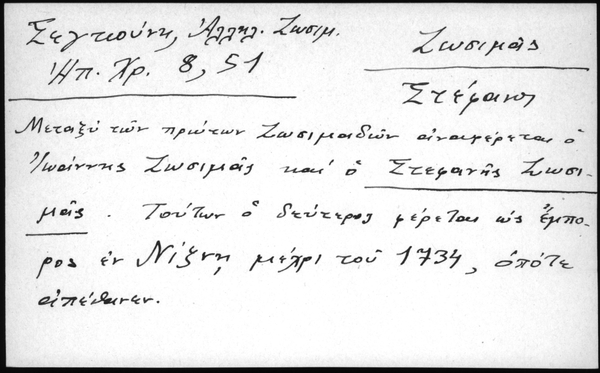 Σεγκούνη, Ἀλληλ. Ζωσιμ.
Ἠπ. Χρ. 8, 51
Ζωσιμᾶς
Στέφανος
Μεταξὺ τῶν πρώτων Ζωσιμαδῶν ἀναφέρεται ὁ
Ἰωάννης Ζωσιμᾶς καὶ ὁ Στεφανῆς Ζωσι-
μᾶς. Τούτων ὁ δεύτερος φέρεται ὡς ἔμπο-
ρος ἐν Νίζνῃ μέχρι τοῦ 1734, ὁπότε
ἀπέθανεν.